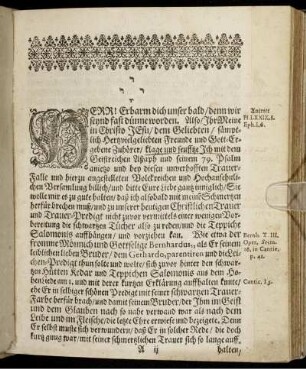 HERR! Erbarm dich unser bald / denn wir
seynd fast dünne worden. Also / Ihr Meine
in Christo JESu / dem Geliebten / sämpt-
lich Hertzvielgeliebten Freunde und Gott-Er-
gebene Zuhörer / klage und seufftze Ich mit dem
Geistreichen Assaph und seinem 79. Psalm
anietzo und bey diesen unverhofften Trauer-
Falle und hierzu angestelleten Volckreichen und Hochansehnli-
chen Versamlung billich / und bitte Eure Liebe gantz inniglich / Sie
wolle mir es zu gute halten / daß ich alsobald mit meine Schmertzen
herfür brechen muß / und zu unserer heutigen Christlichen Trauer
und Trauer-Predigt nicht zuvor vermittels einer wenigen Vor-
bereitung die schwartzen Tücher also zu reden / und die Teppiche
Salomonis auffhängen / und vorziehen kan. Wie etwa der
fromme Mönnich und Gottselige Bernhardus, als Er seinem
leiblichen lieben Bruder / dem Gerhardo, parentiren und die
chen-Predigt thun solte und wolte / sich zuvor hinter den schwar-
tzen Hütten Kedar und Teppichen Salomonis aus dem Ho-
henliede am 1. und mit derer kurtzen Erklärung auffhalten kunte /
ehe Er in selbiger schönen Predigt mit seiner schwartzen Trauer-
Farbe herfür brach / und damit seinem Bruder / der Ihm im Geist
und dem Glauben nach so nahe verwand war als nach dem
Leibe und im Fleische / die letzte Ehre erwiese und bezeigete. Denn
Er selbst muste sich verwundern / daß Er in solcher Rede / die doch
kurtz gnug war / mit seiner schmertzlichen Trauer sich so lange auff-
A ij
halten /
Anienit
Ps. LXXIX, 8.
Eph. I, 6.
Bernh. T. III.
Oper. Serm.
26. in Cantic.
p. 42.
Cantic. I, 5.